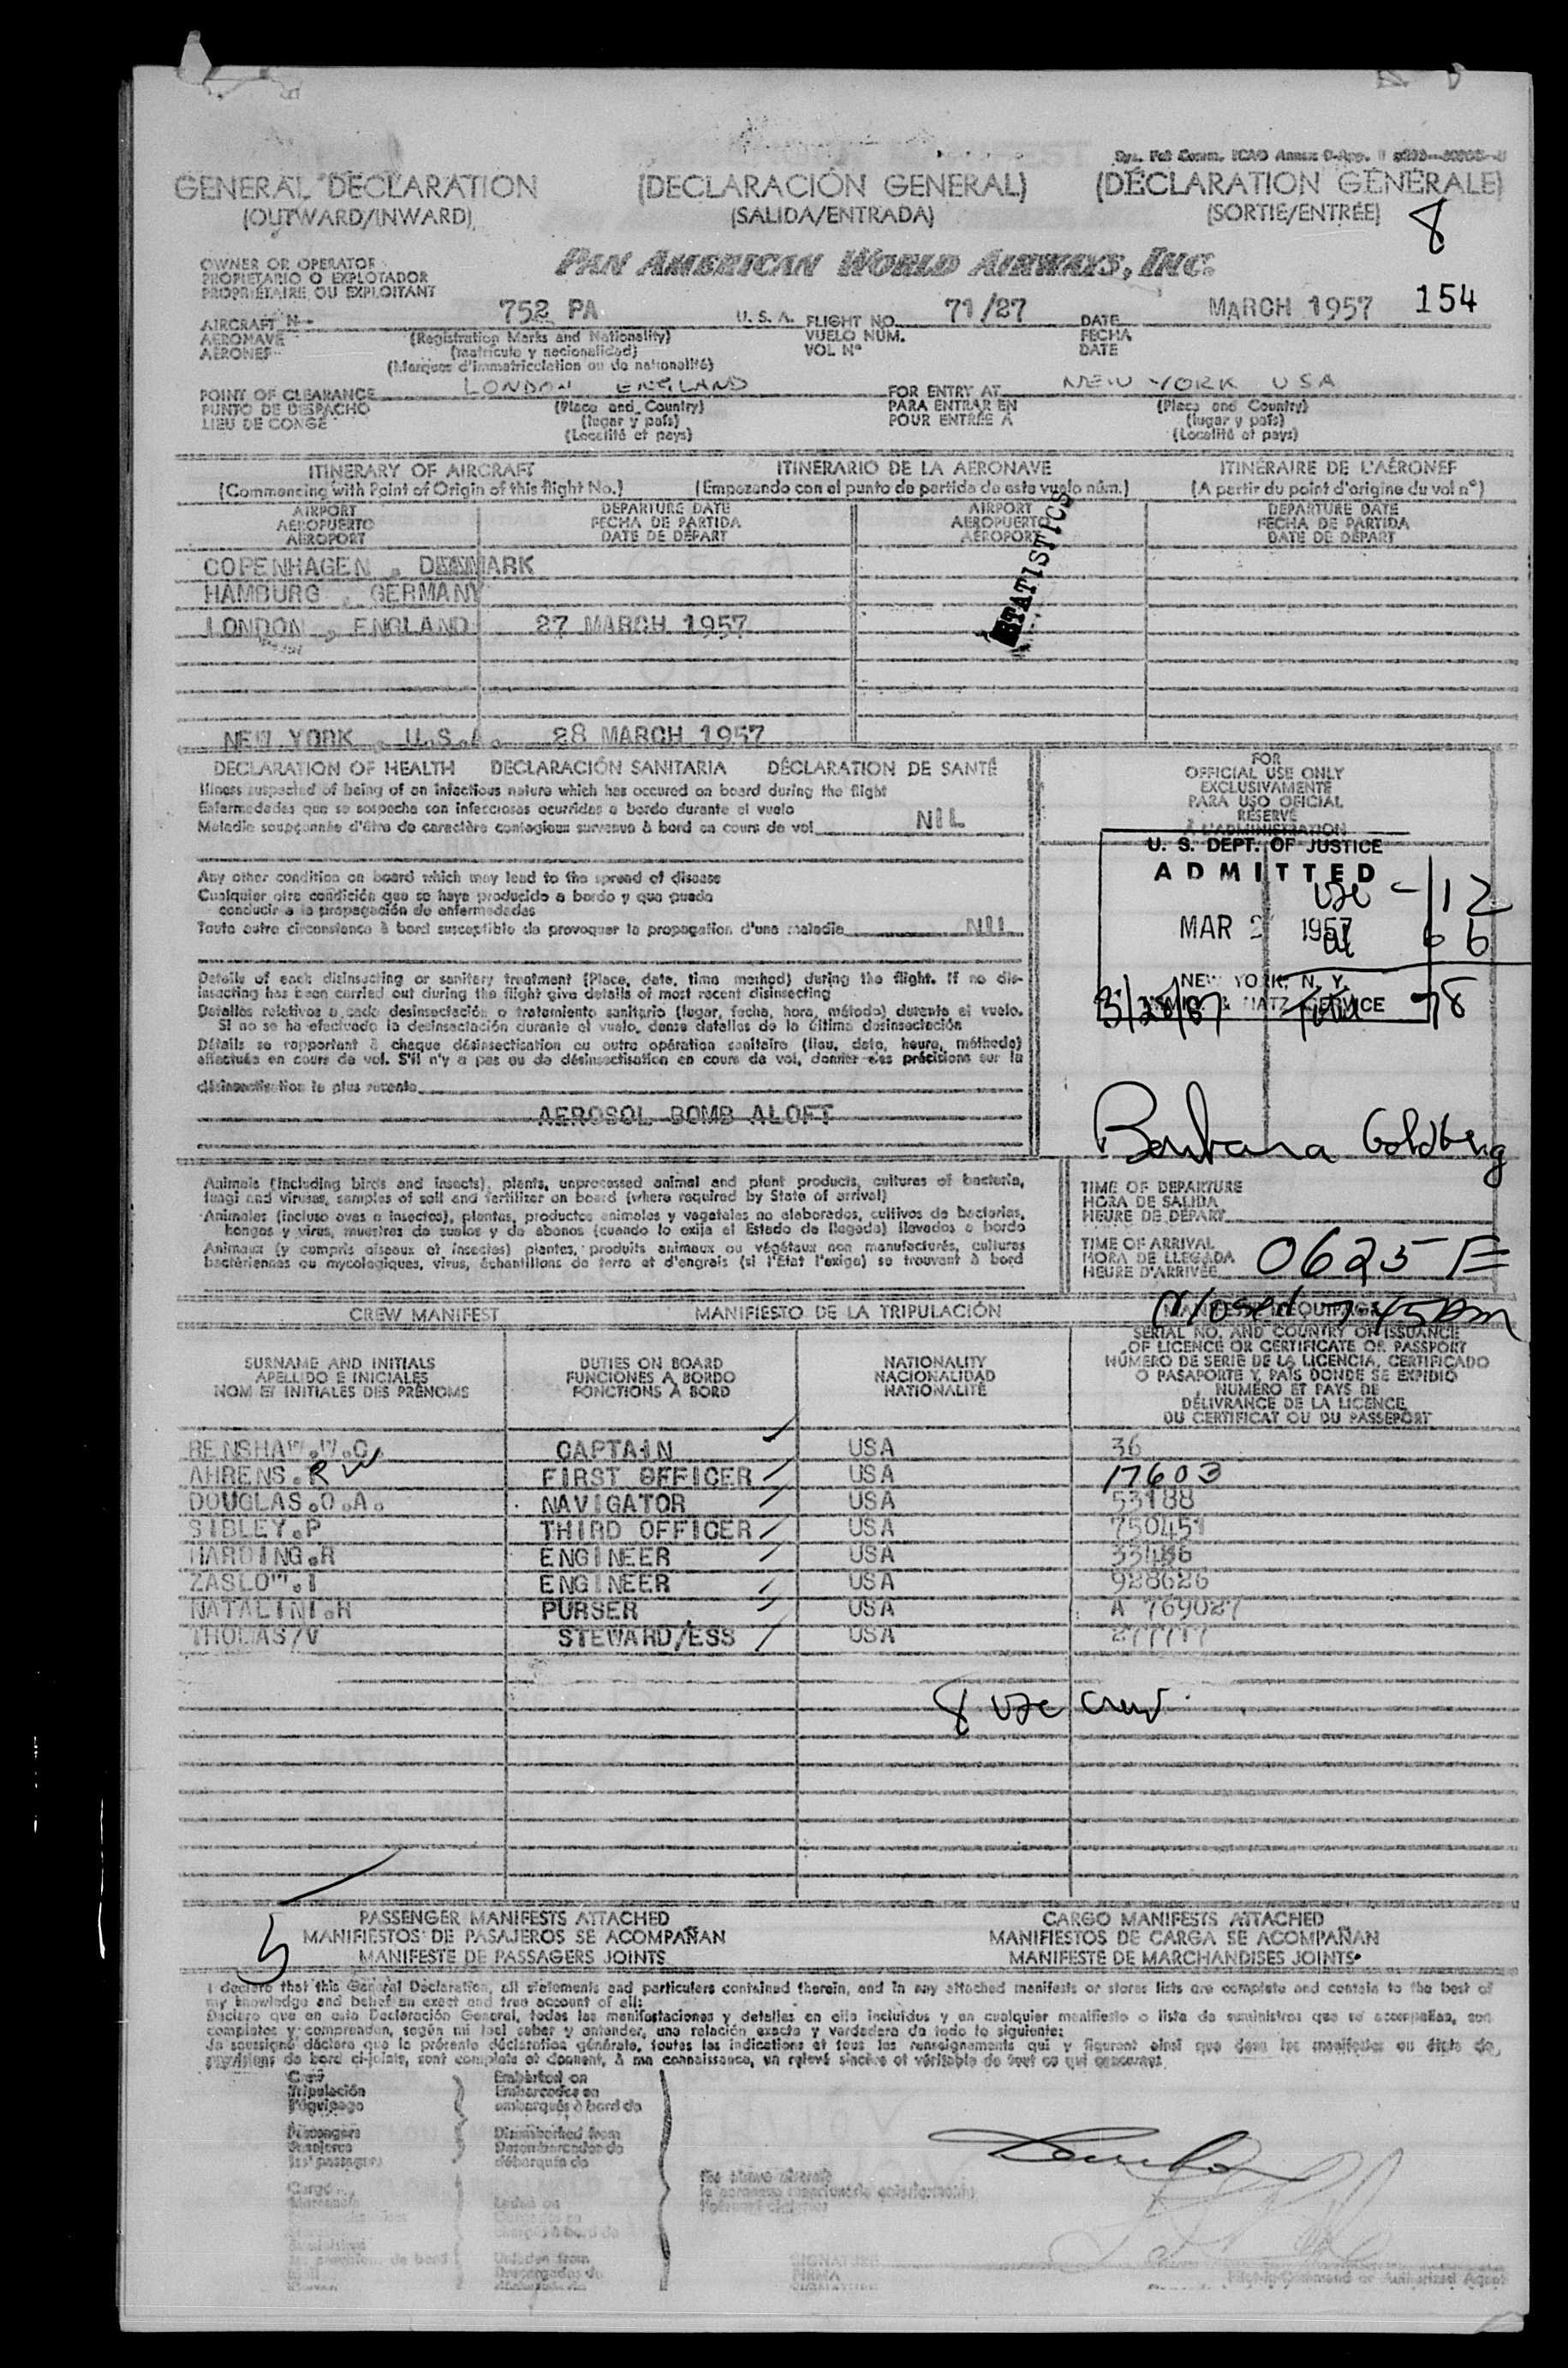 GENERAL DECLARATION (DECLARACIÓN GENERAL) (DÉCLARATION GÉNÉRALE)
(OUTWARD/INWARD) (SALIDA/ENTRADA) (SORTIE/ENTRÉE) 8
OWNER OR OPERATOR
PROPIETARIO O EXPLOTADOR
PROPRIÉTAIRE OU EXPLOITANT
PAN AMERICAN WORLD AIRWAYS, INC.
AIRCRAFT N 752 PA U. S. A. FLIGHT NO. 71/27 DATE MARCH 1957 154
AERONAVE (Registration Marks and Nationality) VUELO NÚM. FECHA
AÉRONEF (matrícula y nacionalidad) VOL Nº DATE
(Marques d'immatriculation ou de nationalité)
POINT OF CLEARANCE LONDON ENGLAND FOR ENTRY AT NEW YORK USA
PUNTO DE DESPACHO (Place and Country) PARA ENTRAR EN (Place and Country)
LIEU DE CONGÉ (lugar y país) POUR ENTRÉE A (lugar y país)
(Localité et pays) (Localité et pays)
ITINERARY OF AIRCRAFT ITINERARIO DE LA AERONAVE ITINÉRAIRE DE L'AÉRONEF
(Commencing with Point of Origin of this flight No.) (Empezando con el punto de partida de este vuelo núm.) (A partir du point d'origine du vol nº)
AIRPORT DEPARTURE DATE AIRPORT DEPARTURE DATE
AEROPUERTO FECHA DE PARTIDA AEROPUERTO FECHA DE PARTIDA
AÉROPORT DATE DE DÉPART AÉROPORT DATE DE DÉPART
STATISTICS
COPENHAGEN , DENMARK
HAMBURG , GERMANY
LONDON , ENGLAND 27 MARCH 1957
NEW YORK , U.S.A. 28 MARCH 1957
DECLARATION OF HEALTH DECLARACIÓN SANITARIA DÉCLARATION DE SANTÉ
Illness suspected of being of an infectious nature which has occured on board during the flight
Enfermedades que se sospecha son infecciosas ocurridas a bordo durante el vuelo
Maladie soupçonnée d'être de caractère contagieux survenue à bord en cours de vol NIL
Any other condition on board which may lead to the spread of disease
Cualquier otra condición que se haya producido a bordo y que pueda
conducir a la propagación de enfermedades
Toute autre circonstance à bord susceptible de provoquer la propagation d'une maladie NIL
Details of each disinsecting or sanitary treatment (Place, date, time method) during the flight. If no dis-
insecting has been carried out during the flight give details of most recent disinsecting
Detalles relativos a cada desinsectación o tratamiento sanitario (lugar, fecha, hora, método) durante el vuelo.
Si no se ha efectuado la desinsectación durante el vuelo, dense detalles de la última desinsectación
Détails se rapportant à chaque désinsectisation ou autre opération sanitaire (lieu, date, heure, méthode)
effectuée en cours de vol. S'il n'y a pas eu de désinsectisation en cours de vol, donner des précisions sur la
désinsectisation la plus récente
AEROSOL BOMB ALOFT
FOR
OFFICIAL USE ONLY
EXCLUSIVAMENTE
PARA USO OFICIAL
RÉSERVÉ
À L'ADMINISTRATION
U. S. DEPT. OF JUSTICE
ADMITTED
USC - 12
MAR 2 1957 al 66
NEW YORK, N. Y.
& NATZ SERVICE
3/28/57 Total 78
Barbara Goldberg
Animals (including birds and insects), plants, unprocessed animal and plant products, cultures of bacteria,
fungi and viruses, samples of soil and fertilizer on board (where required by State of arrival)
Animales (incluso aves e insectos), plantas, productos animales y vegetales no elaborados, cultivos de bacterias,
hongos y virus, muestras de suelos y de abonos (cuando lo exija el Estado de llegada) llevados a bordo
Animaux (y compris oiseaux et insectes) plantes, produits animaux ou végétaux non manufacturés, cultures
bactériennes ou mycologiques, virus, échantillons de terre et d'engrais (si l'État l'exige) se trouvant à bord
TIME OF DEPARTURE
HORA DE SALIDA
HEURE DE DÉPART
TIME OF ARRIVAL
HORA DE LLEGADA
HEURE D'ARRIVÉE 0625 E
Closed 745 am
CREW MANIFEST MANIFIESTO DE LA TRIPULACIÓN
SURNAME AND INITIALS
APELLIDO E INICIALES
NOM ET INITIALES DES PRÉNOMS
DUTIES ON BOARD
FUNCIONES A BORDO
FONCTIONS À BORD
NATIONALITY
NACIONALIDAD
NATIONALITÉ
SERIAL NO. AND COUNTRY OF ISSUANCE
OF LICENCE OR CERTIFICATE OR PASSPORT
NÚMERO DE SERIE DE LA LICENCIA, CERTIFICADO
O PASAPORTE Y PAÍS DONDE SE EXPIDIÓ
NUMÉRO ET PAYS DE
DÉLIVRANCE DE LA LICENCE
DU CERTIFICAT OU DU PASSEPORT
RENSHAW.W.C CAPTAIN USA 36
AHRENS.R W FIRST OFFICER USA 17603
DOUGLAS.O.A. NAVIGATOR USA 53188
SIBLEY.P THIRD OFFICER USA 750451
HARDING.R ENGINEER USA
ZASLOW.I ENGINEER USA 928626
NATALINI.H PURSER USA A 769027
THOMAS/V STEWARD/ESS USA 277717
8 USC crew
5
PASSENGER MANIFESTS ATTACHED CARGO MANIFESTS ATTACHED
MANIFIESTOS DE PASAJEROS SE ACOMPAÑAN MANIFIESTOS DE CARGA SE ACOMPAÑAN
MANIFESTE DE PASSAGERS JOINTS MANIFESTE DE MARCHANDISES JOINTS
I declare that this General Declaration, all statements and particulars contained therein, and in any attached manifests or stores lists are complete and contain to the best of
my knowledge and belief an exact and true account of all:
Declaro que en esta Declaración General, todas las manifestaciones y detalles en ella incluidos y en cualquier manifiesto o lista de suministros que se acompañan, son
completos y comprenden, según mi leal saber y entender, una relación exacta y verdadera de todo lo siguiente:
Je soussigné déclare que la présente déclaration générale, toutes les indications et tous les renseignements qui y figurent ainsi que dans les manifestes ou états de
provisions de bord ci-joints, sont complets et donnent, à ma connaissance, un relevé sincère et véritable de tout ce qui concerne
Crew Embarked on
Tripulación Embarcados en
l'équipage embarqués à bord de
Passengers Disembarked from
Pasajeros Desembarcados de
les passagers débarqués de
Cargo Laden on
Cargados en
chargés à bord de
les provisions de bord Unladen from
Descargados de
the above aircraft
SIGNATURE
FIRMA
Pilot-in-Command or Authorized Agent